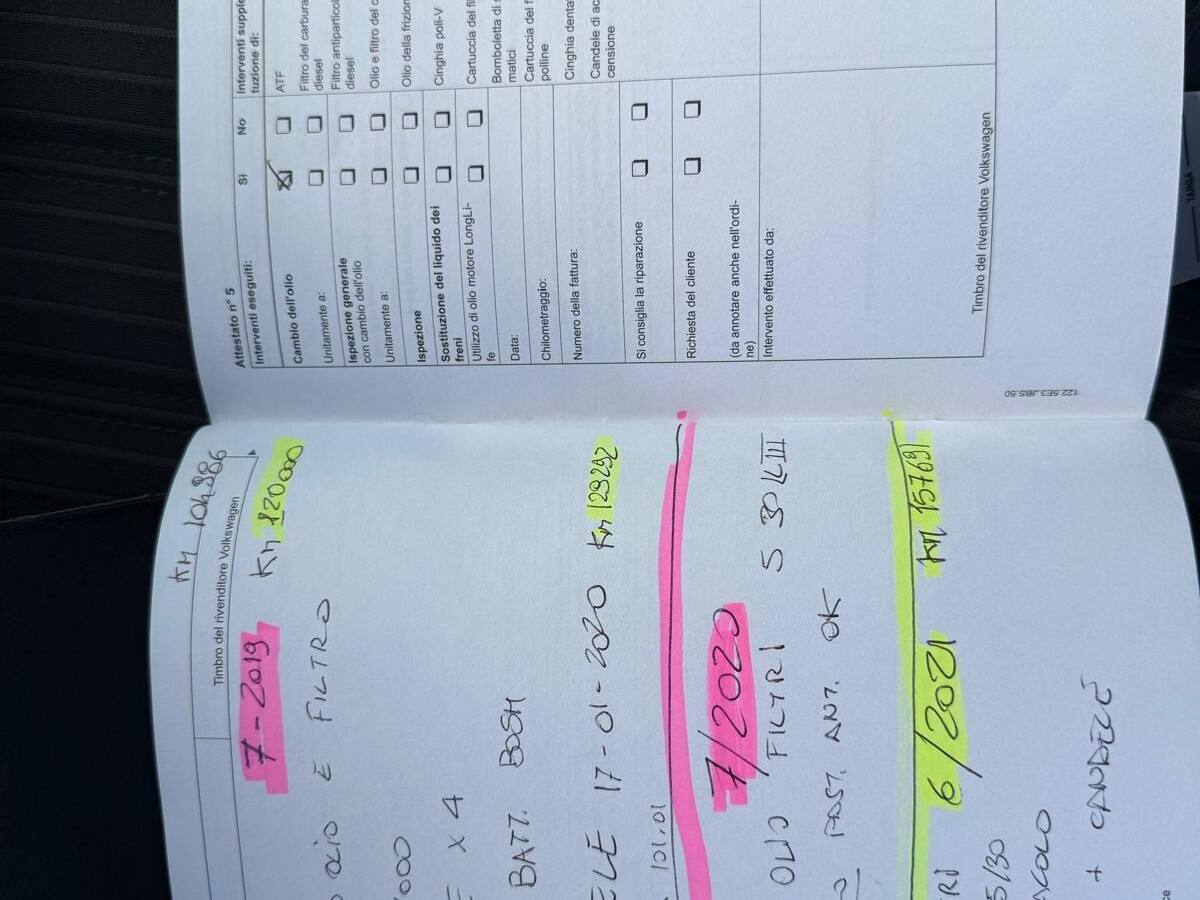 Attestato n° 5
Interventi eseguiti:
Sì No Interventi
tuzione di:
Cambio dell'olio ATF
Unitamente a: Filtro del
diesel
Ispezione generale Filtro
con cambio dell'olio diesel
Unitamente a: Olio e filtro del
Ispezione Olio della
Sostituzione del liquido dei Cinghia poli-V
freni
Utilizzo di olio motore LongLi- Cartuccia del
fe
Data: Bomboletta di
matici
Chilometraggio: Cartuccia del
polline
Numero della fattura: Cinghia
Candele di ac
censione
Si consiglia la riparazione
Richiesta del cliente
(da annotare anche nell'ordi-
ne)
Intervento effettuato da:
Timbro del rivenditore Volkswagen
122.5E3.JBS.50
KM 104986
Timbro del rivenditore Volkswagen
7-2019 Km 120000
OLIO E FILTRO
000
X 4
BATT. BOSH
17-01-2020 Km 129292
101.01
7/2020
OLIO FILTRI 5 30 LL III
POST. ANT. OK
6/2021 KM 157691
5/30
+ CANDELE